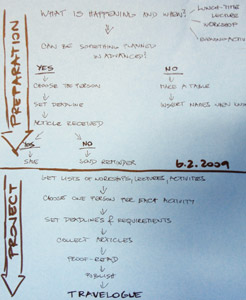 WHAT IS HAPPENING AND WHEN?
LUNCH-TIME LECTURE
WORKSHOP
CAN BE SOMETHING PLANNED IN ADVANCE?
YES
NO
CHOOSE THE PERSON
MAKE A TABLE
SET DEADLINE
INSERT NAMES
ARTICLE RECEIVED
YES
NO
SEND REMINDER
6.2.2009
PREPARATION
GET LISTS OF WORKSHOPS, LECTURES, ACTIVITIES
CHOOSE ONE PERSON PER EACH ACTIVITY
SET DEADLINES & REQUIREMENTS
COLLECT ARTICLES
PROOF-READ
PUBLISH
TRAVELOGUE
PROJECT